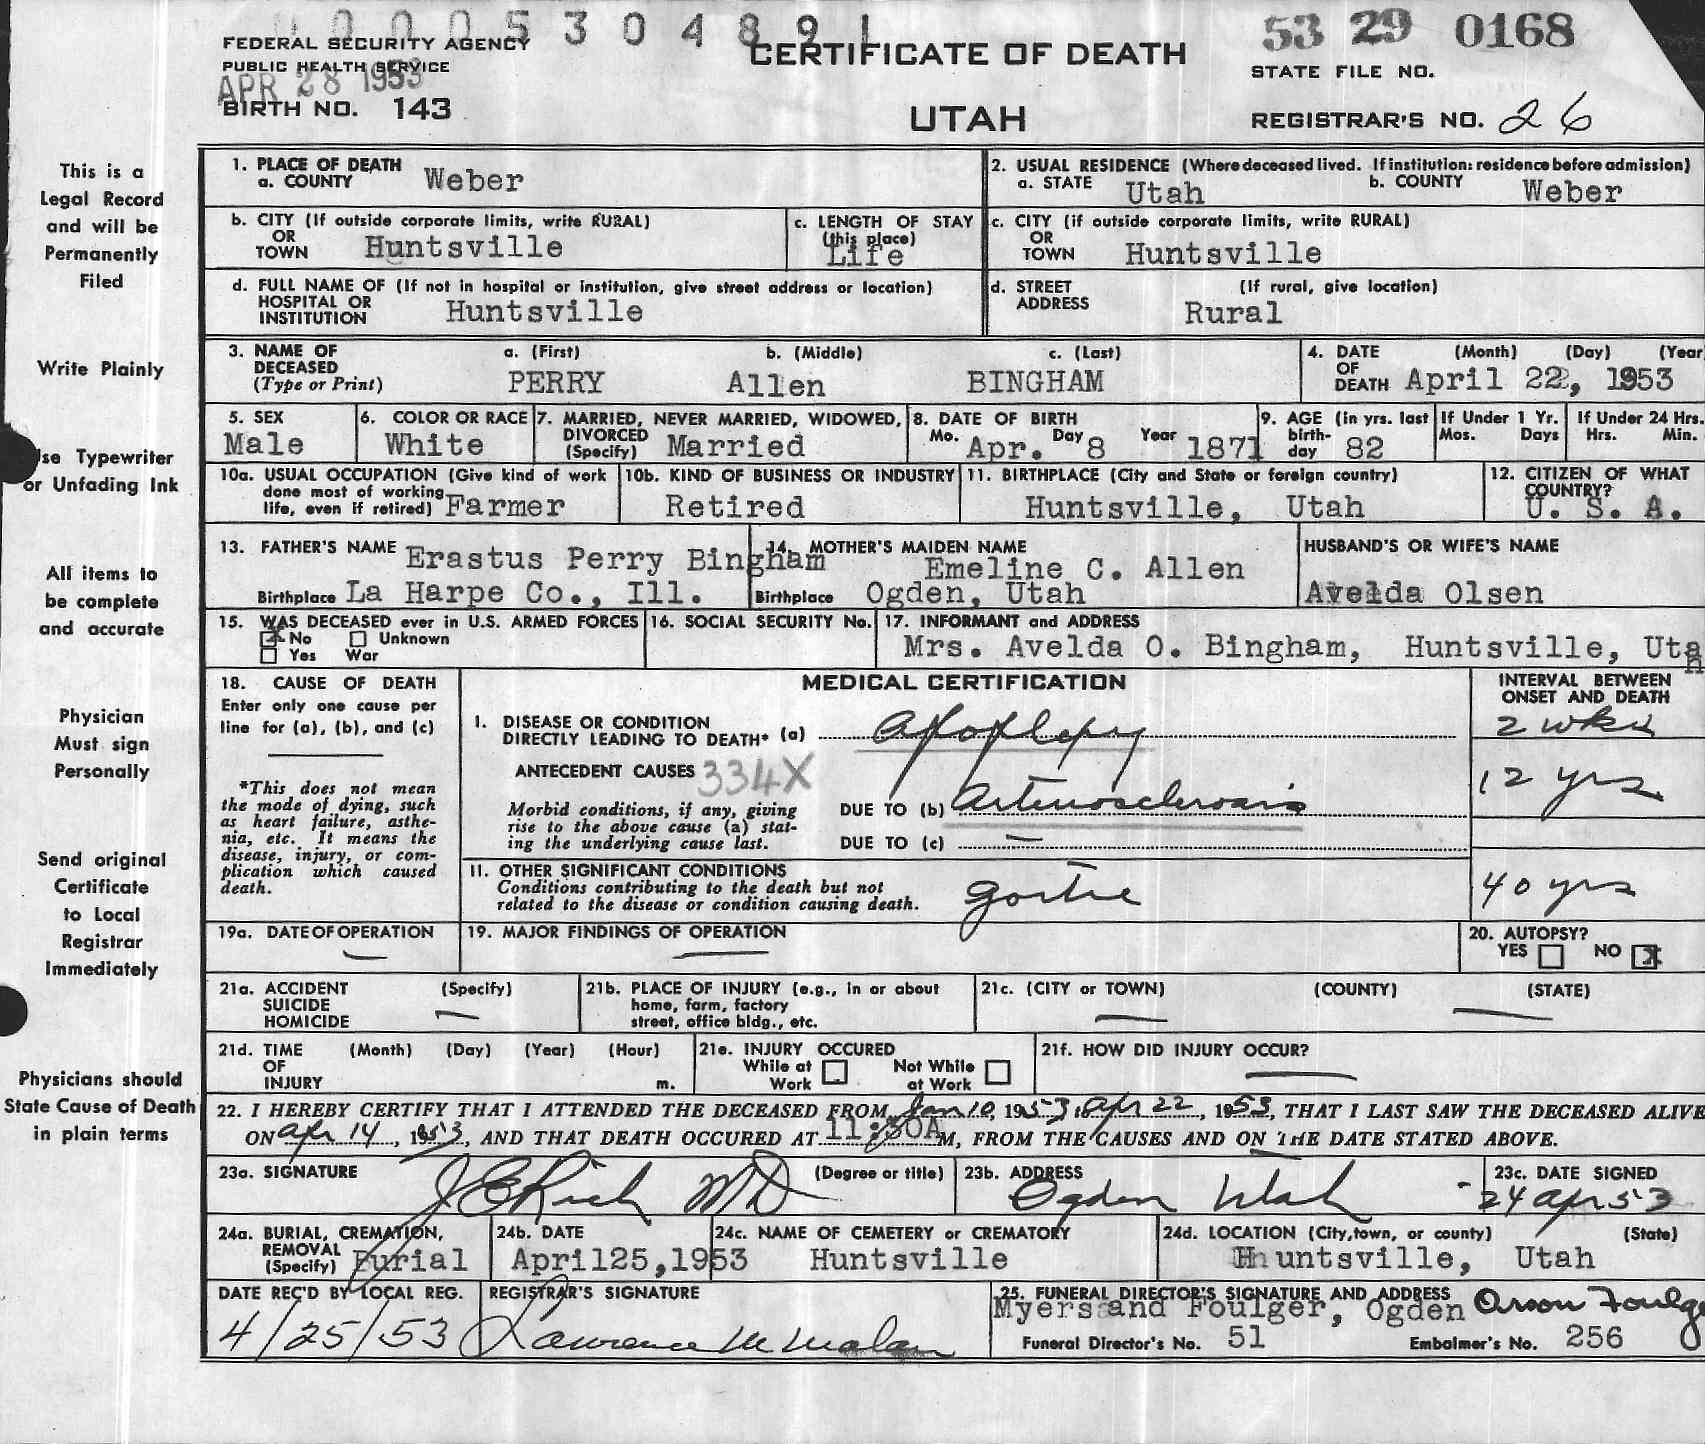 00005304891
FEDERAL SECURITY AGENCY
PUBLIC HEALTH SERVICE
APR 28 1953
BIRTH NO. 143
CERTIFICATE OF DEATH
UTAH
53 29 0168
STATE FILE NO.
REGISTRAR'S NO. 26
This is a
Legal Record
and will be
Permanently
Filed
Write Plainly
Use Typewriter
or Unfading Ink
All items to
be complete
and accurate
Physician
Must sign
Personally
Send original
Certificate
to Local
Registrar
Immediately
Physicians should
State Cause of Death
in plain terms
1. PLACE OF DEATH
a. COUNTY Weber
2. USUAL RESIDENCE (Where deceased lived. If institution: residence before admission)
a. STATE Utah b. COUNTY Weber
b. CITY (If outside corporate limits, write RURAL)
OR
TOWN Huntsville
c. LENGTH OF STAY
(this place)
Life
c. CITY (if outside corporate limits, write RURAL)
OR
TOWN Huntsville
d. FULL NAME OF (If not in hospital or institution, give street address or location)
HOSPITAL OR
INSTITUTION Huntsville
d. STREET (If rural, give location)
ADDRESS Rural
3. NAME OF a. (First) b. (Middle) c. (Last)
DECEASED
(Type or Print) PERRY Allen BINGHAM
4. DATE (Month) (Day) (Year
OF
DEATH April 22, 1953
5. SEX
Male
6. COLOR OR RACE
White
7. MARRIED, NEVER MARRIED, WIDOWED,
DIVORCED
(Specify) Married
8. DATE OF BIRTH
Mo. Apr. Day 8 Year 1871
9. AGE (in yrs. last
birth-
day 82
If Under 1 Yr.
Mos. Days
If Under 24 Hrs.
Hrs. Min.
10a. USUAL OCCUPATION (Give kind of work
done most of working
life, even if retired) Farmer
10b. KIND OF BUSINESS OR INDUSTRY
Retired
11. BIRTHPLACE (City and State or foreign country)
Huntsville, Utah
12. CITIZEN OF WHAT
COUNTRY?
U. S. A.
13. FATHER'S NAME Erastus Perry Bingham
Birthplace La Harpe Co., Ill.
14. MOTHER'S MAIDEN NAME
Emeline C. Allen
Birthplace Ogden, Utah
HUSBAND'S OR WIFE'S NAME
Avelda Olsen
15. WAS DECEASED ever in U.S. ARMED FORCES
No Unknown
Yes War
16. SOCIAL SECURITY No.
17. INFORMANT and ADDRESS
Mrs. Avelda O. Bingham, Huntsville, Utah
18. CAUSE OF DEATH
Enter only one cause per
line for (a), (b), and (c)
*This does not mean
the mode of dying, such
as heart failure, asthe-
nia, etc. It means the
disease, injury, or com-
plication which caused
death.
MEDICAL CERTIFICATION
INTERVAL BETWEEN
ONSET AND DEATH
I. DISEASE OR CONDITION
DIRECTLY LEADING TO DEATH* (a) Apoplexy 2 wks
ANTECEDENT CAUSES 334X
Morbid conditions, if any, giving
rise to the above cause (a) stat-
ing the underlying cause last.
DUE TO (b) Arteriosclerosis 12 yrs
DUE TO (c) —
11. OTHER SIGNIFICANT CONDITIONS
Conditions contributing to the death but not
related to the disease or condition causing death.
goitre 40 yrs
19a. DATE OF OPERATION
—
19. MAJOR FINDINGS OF OPERATION
—
20. AUTOPSY?
YES NO X
21a. ACCIDENT (Specify)
SUICIDE
HOMICIDE —
21b. PLACE OF INJURY (e.g., in or about
home, farm, factory
street, office bldg., etc.
21c. (CITY or TOWN) (COUNTY) (STATE)
— —
21d. TIME (Month) (Day) (Year) (Hour)
OF
INJURY m.
21e. INJURY OCCURED
While at Not While
Work at Work
21f. HOW DID INJURY OCCUR?
—
22. I HEREBY CERTIFY THAT I ATTENDED THE DECEASED FROM Jan 10, 1953, Apr 22, 1953, THAT I LAST SAW THE DECEASED ALIVE
ON Apr 14, 1953, AND THAT DEATH OCCURED AT 11:30A M, FROM THE CAUSES AND ON THE DATE STATED ABOVE.
23a. SIGNATURE (Degree or title)
J E Rich MD
23b. ADDRESS
Ogden Utah
23c. DATE SIGNED
24 Apr 53
24a. BURIAL, CREMATION,
REMOVAL
(Specify) Burial
24b. DATE
April25,1953
24c. NAME OF CEMETERY or CREMATORY
Huntsville
24d. LOCATION (City,town, or county) (State)
Huntsville, Utah
DATE REC'D BY LOCAL REG.
4/25/53
REGISTRAR'S SIGNATURE
Lawrence M Malan
25. FUNERAL DIRECTOR'S SIGNATURE AND ADDRESS
Myers and Foulger, Ogden Orson Foulge
Funeral Director's No. 51 Embalmer's No. 256